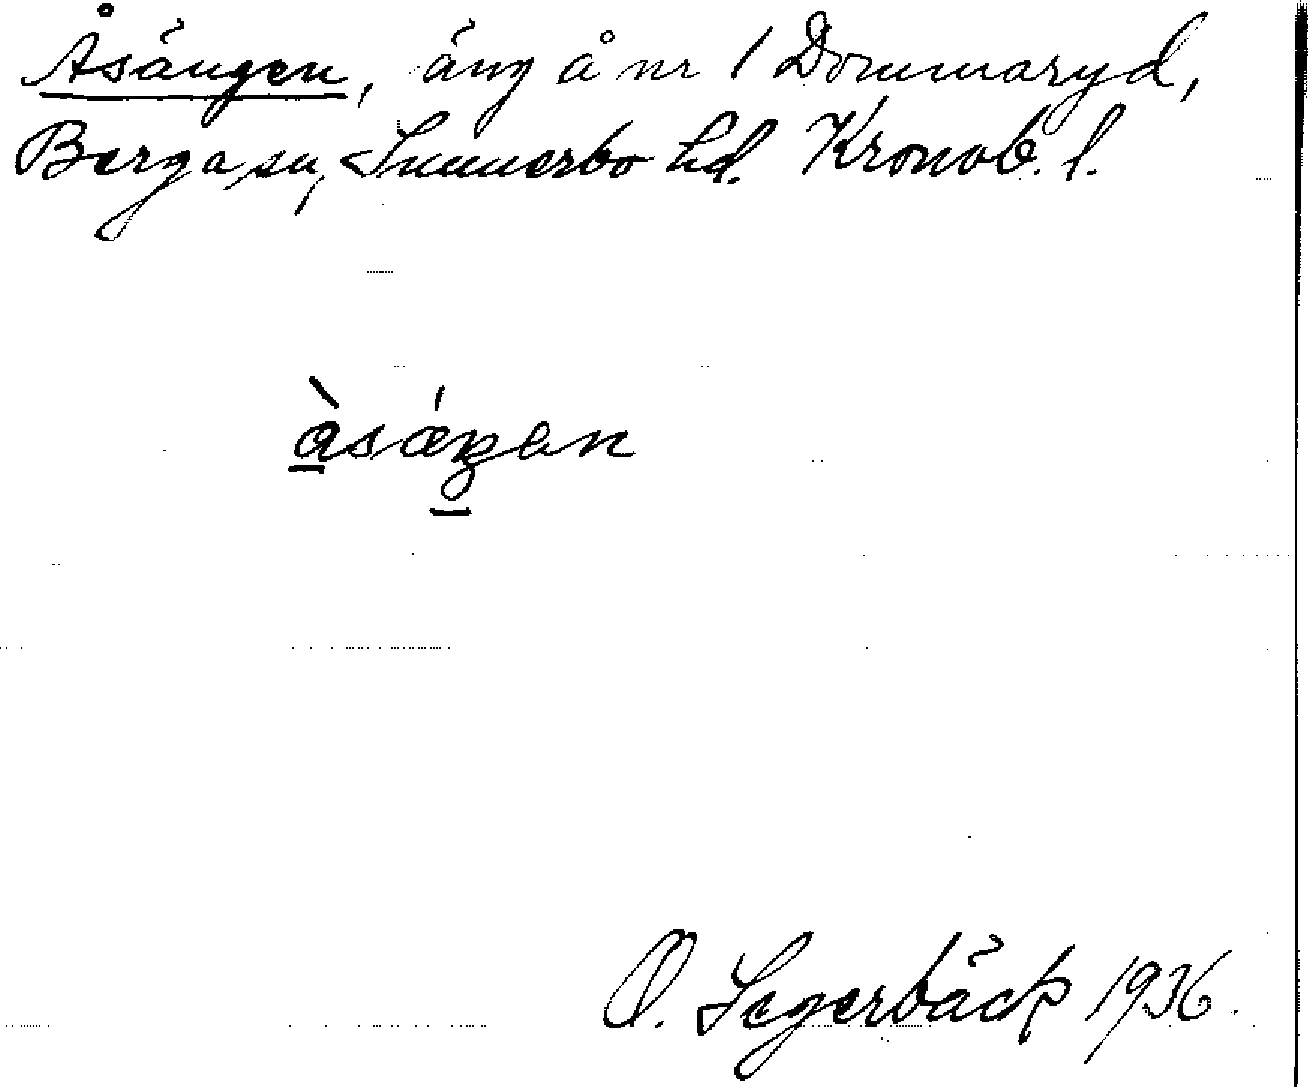 Åsängen, äng å nr 1 Dommaryd,
Berga sn, Sunnerbo hd. Kronob. l.
åsæŋen
O. Segerbäck 1936.